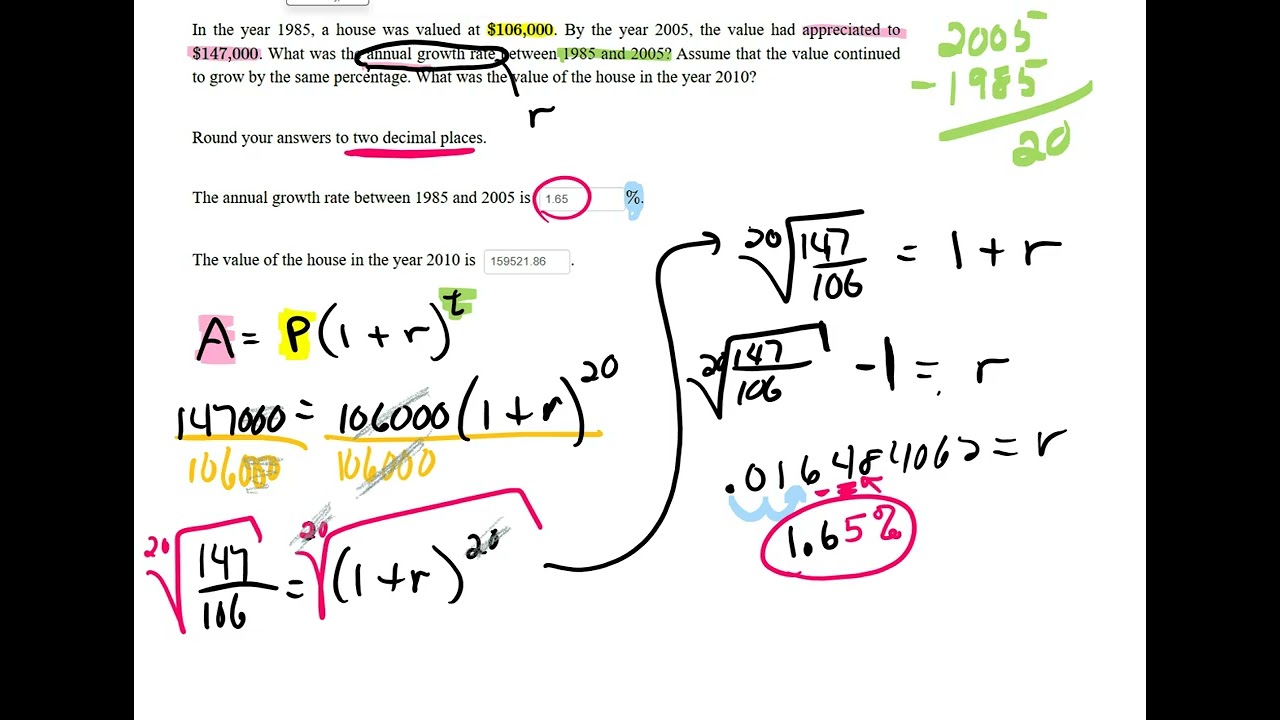 In the year 1985, a house was valued at $106,000. By the year 2005, the value had appreciated to
$147,000. What was the annual growth rate between 1985 and 2005? Assume that the value continued
to grow by the same percentage. What was the value of the house in the year 2010?
r
2005
- 1985
20
Round your answers to two decimal places.
The annual growth rate between 1985 and 2005 is 1.65 %.
The value of the house in the year 2010 is 159521.86 .
A = P(1 + r)^t
147000 = 106000(1 + r)^20
106000 106000
20√147/106 = 20√(1 + r)^20
20√147/106 = 1 + r
20√147/106 - 1 = r
.0164841062 = r
1.65%